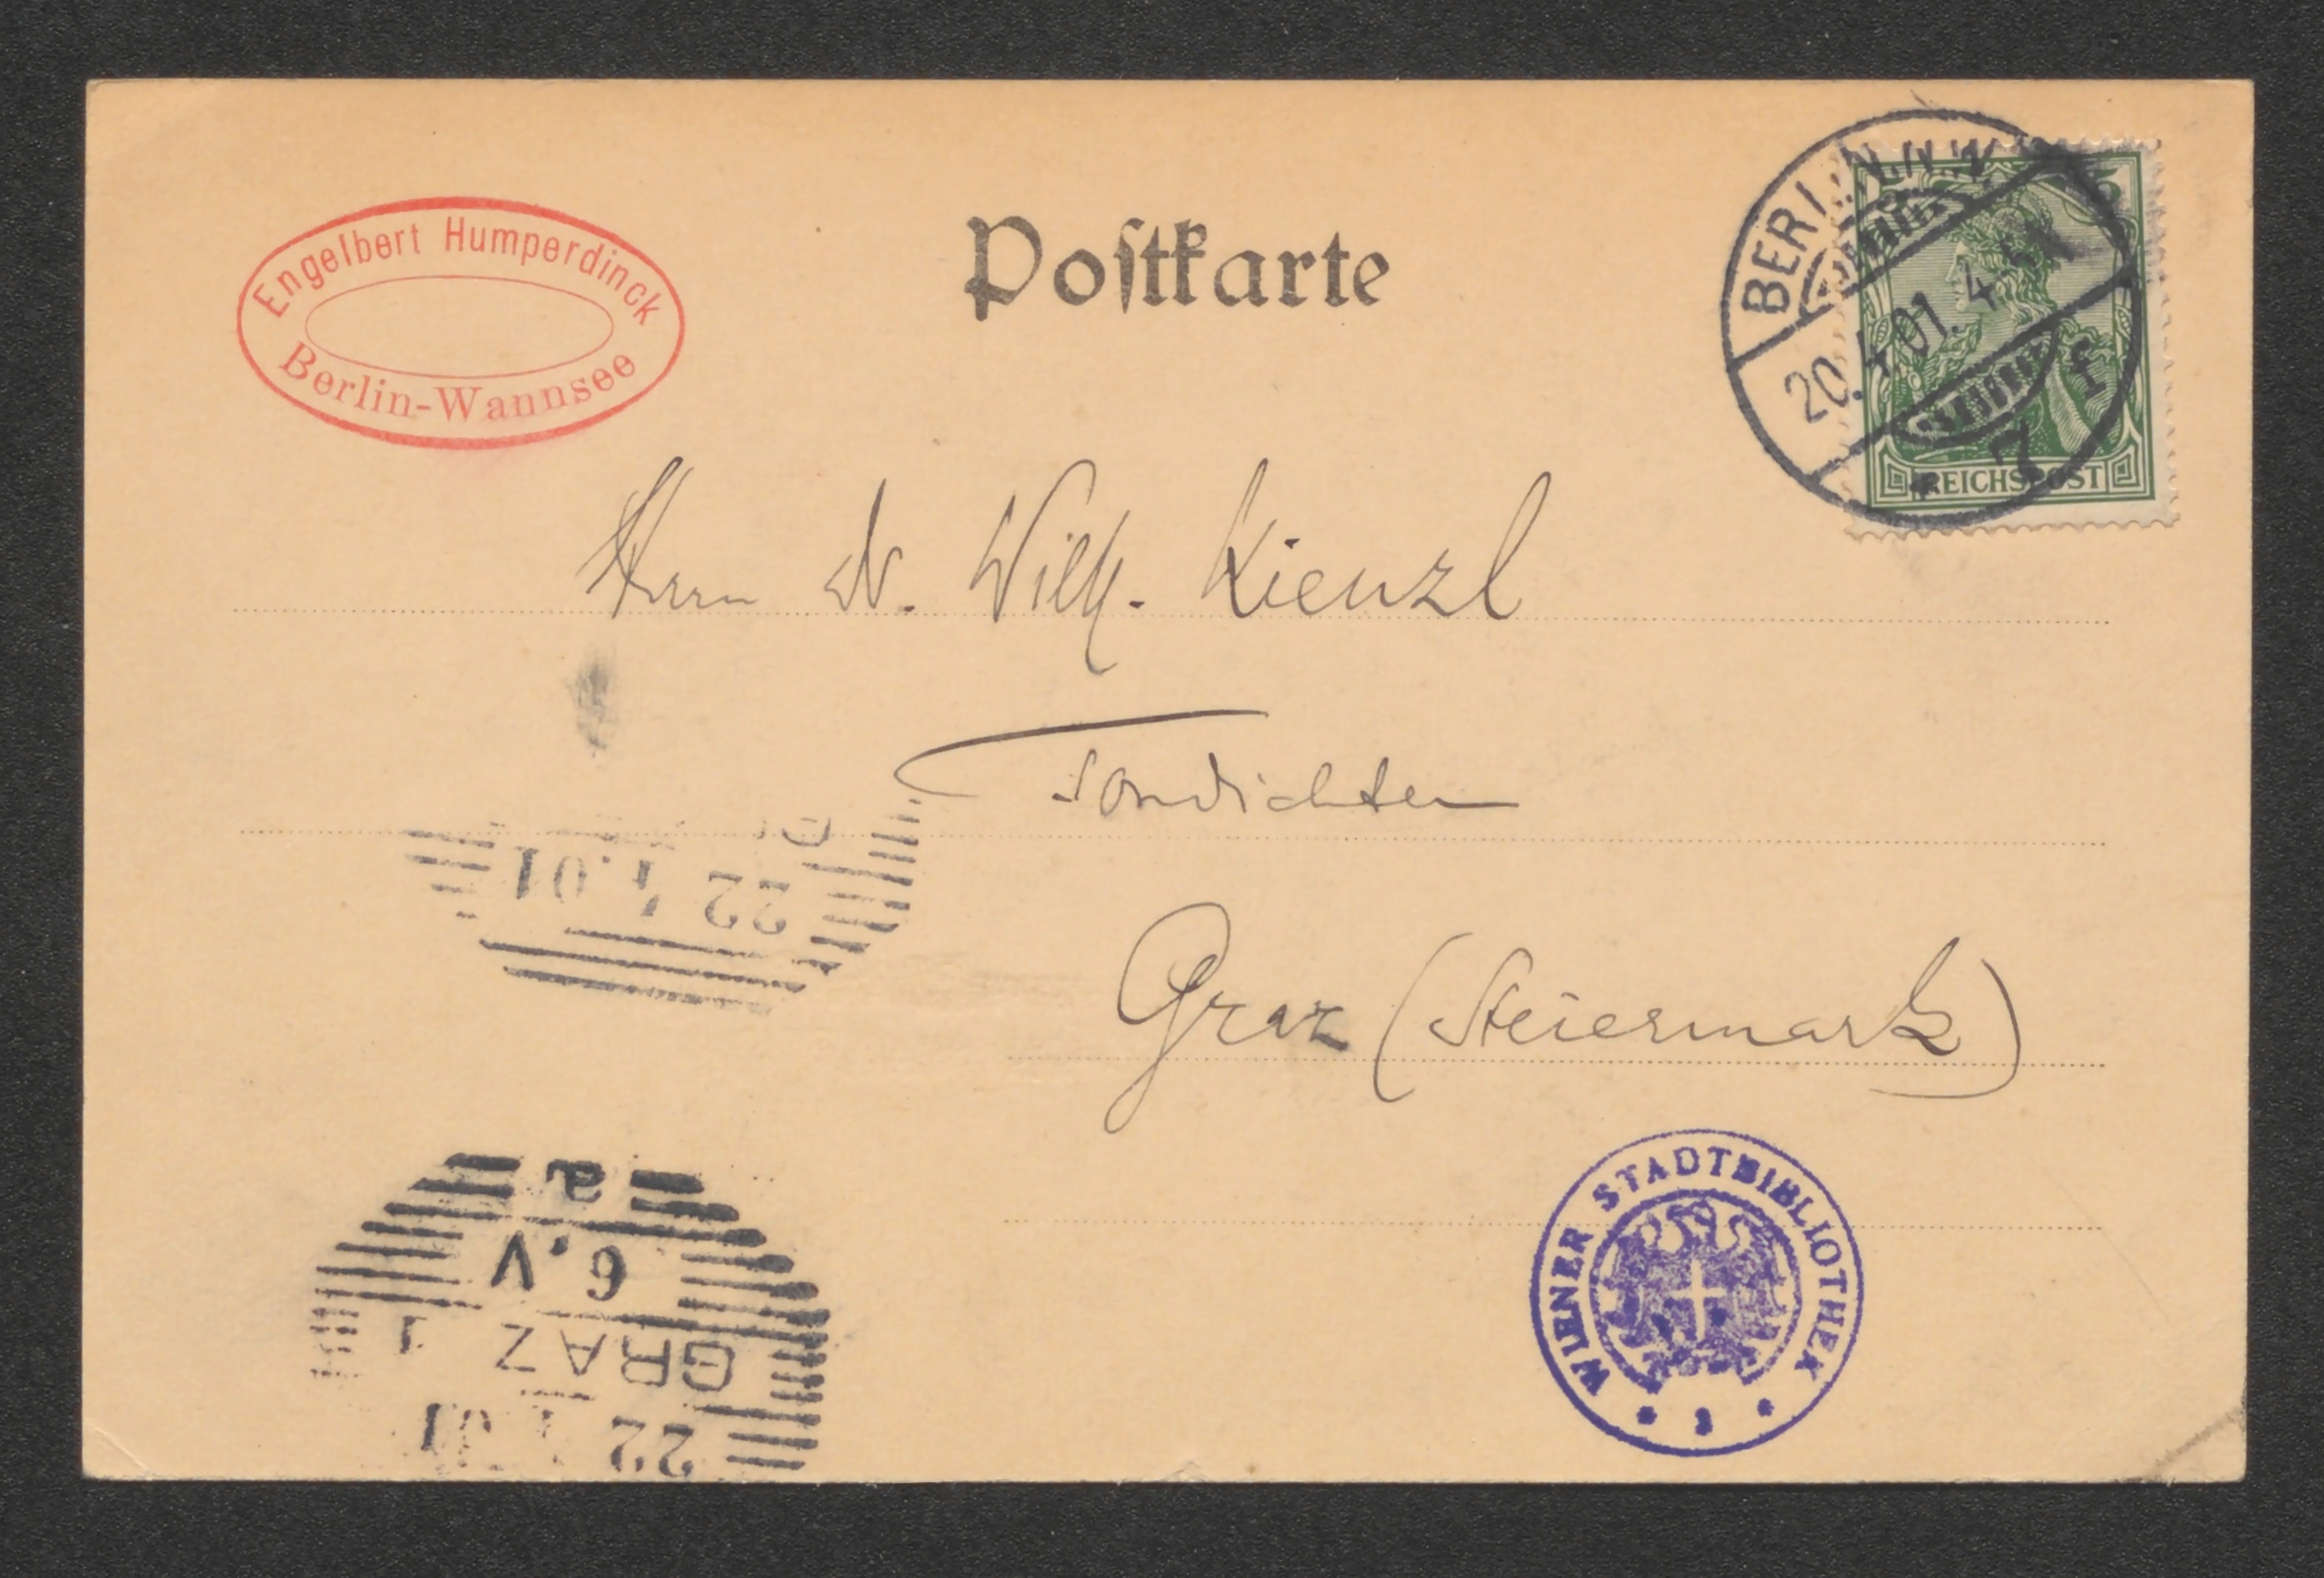 Engelbert Humperdinck
Berlin-Wannsee
Postkarte
BERLIN
20.4.01. 4-5N
7 f
5
REICHSPOST
Herrn Dr. Wilh. Kienzl
Tondichter
Graz (Steiermark)
22 4.01
a
6.V
GRAZ 1
22 4 01
WIENER STADTBIBLIOTHEK